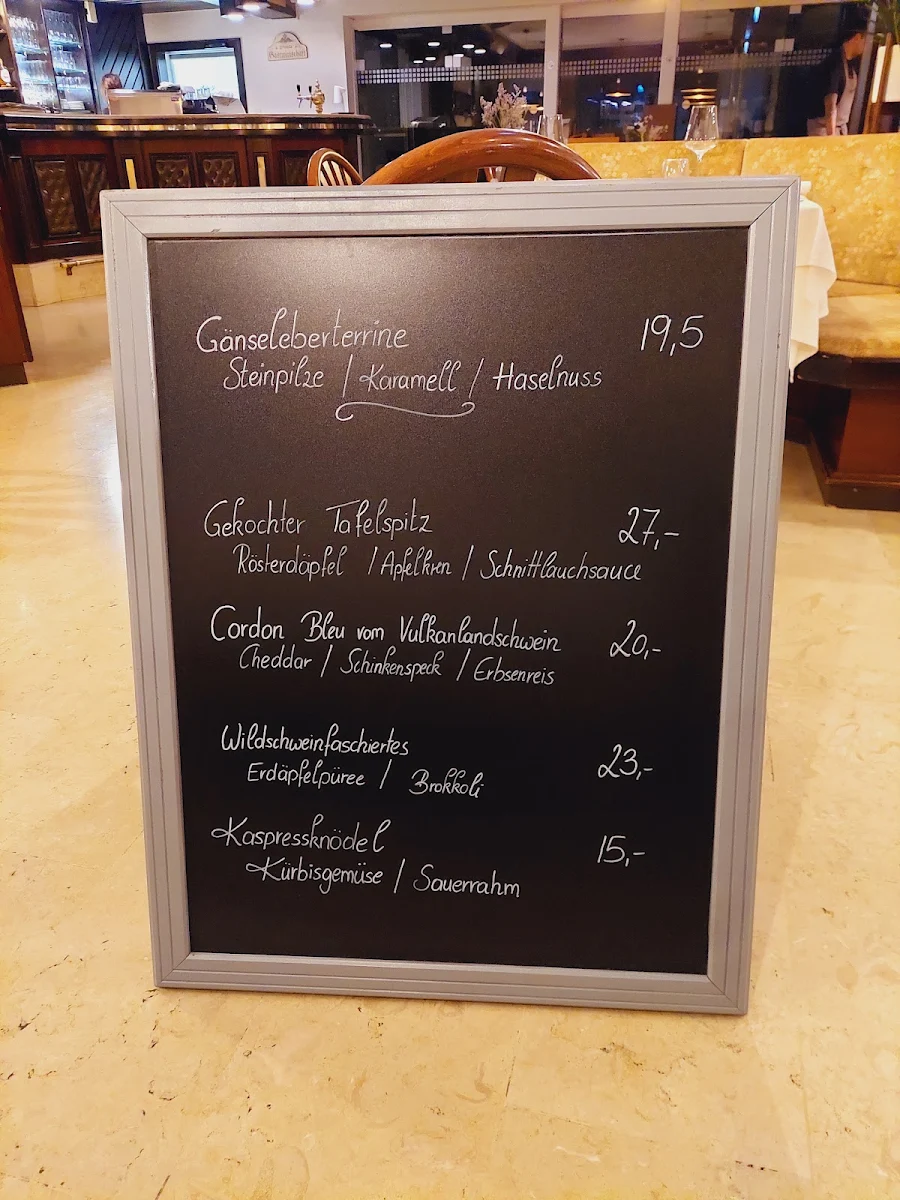 Gänseleberterrine 19,5
Steinpilze / Karamell / Haselnuss
Gekochter Tafelspitz 27,-
Rösterdäpfel / Apfelkren / Schnittlauchsauce
Cordon Bleu vom Vulkanlandschwein 20,-
Cheddar / Schinkenspeck / Erbsenreis
Wildschweinfaschiertes 23,-
Erdäpfelpüree / Brokkoli
Kaspressknödel 15,-
Kürbisgemüse / Sauerrahm